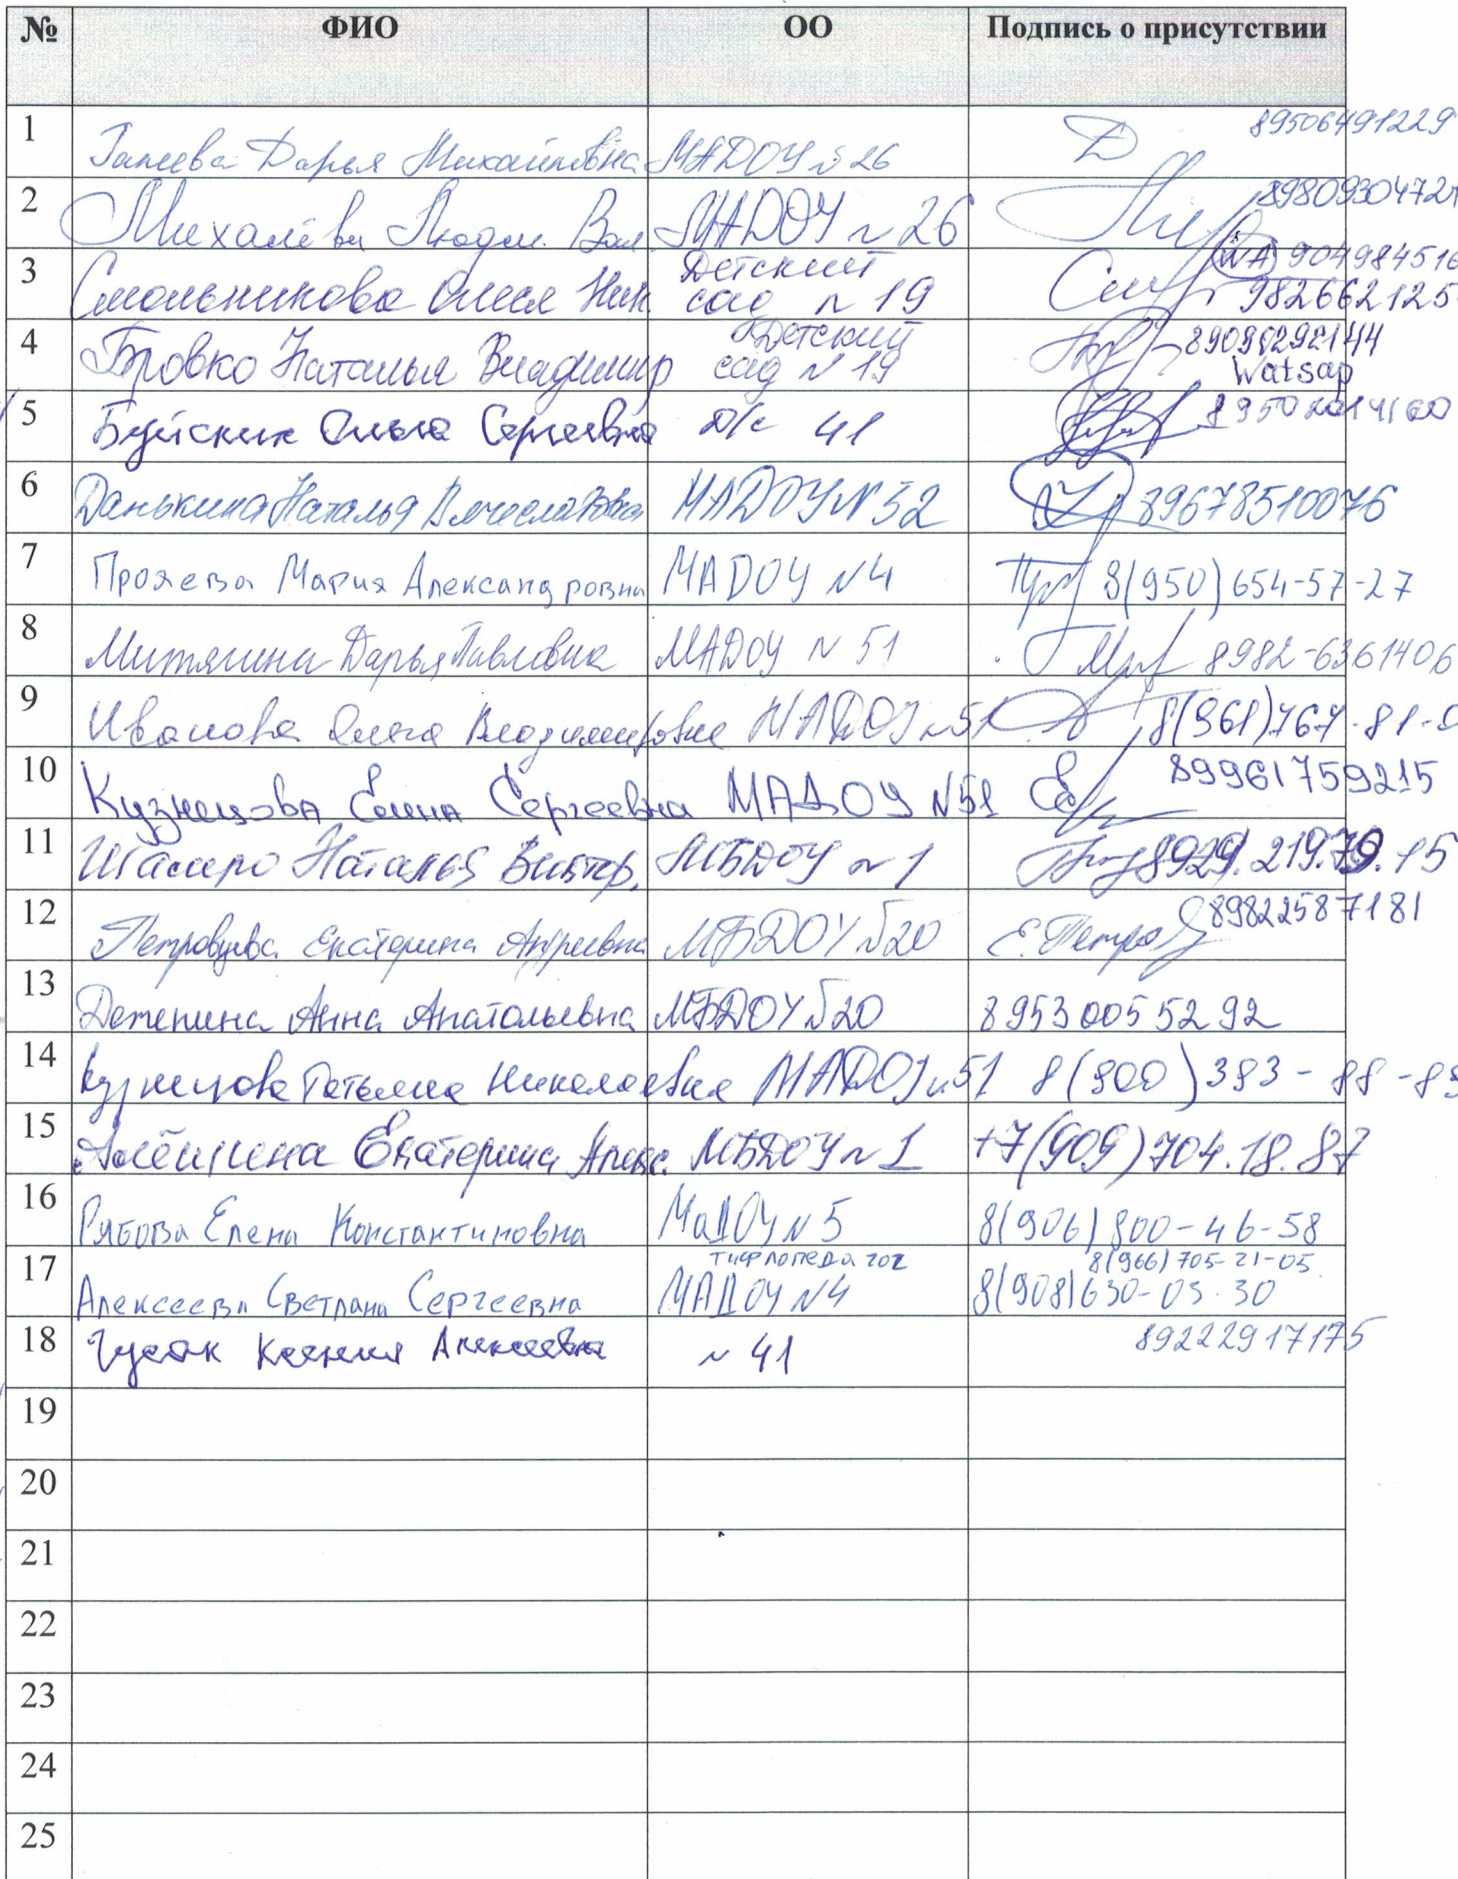 № ФИО ОО Подпись о присутствии
1 Дарья Михайловна МАДОУ №26 89506491229
2 Михалёва Людм. Вал. МАДОУ №26
3 Смольникова Олеся Ник. Детский сад №19
4 Бровко Наталья Владимир Детский сад №19 Watsap
5 Ольга Сергеевна д/с 41
6 Данькина Наталья Вячеславовна МАДОУ №52 89678510076
7 Мария Александровна МАДОУ №4 8(950)654-57-27
8 Митягина Дарья Павловна МАДОУ №51 8982-6361406
9 Иванова Ольга Владимировна МАДОУ №51
10 Кузнецова Елена Сергеевна МАДОУ №51 89961759215
11 Наталья Виктор. МБДОУ №1
12 Екатерина Андреевна МБДОУ №20 Е. 89822587181
13 Анна Анатольевна МБДОУ №20 89530055292
14 Кузнецова Татьяна Николаевна МАДОУ №51
15 Алёшина Екатерина Алекс. МБДОУ №1 +7(909)704.18.87
16 Рябова Елена Константиновна МаДОУ №5 8(906)800-46-58
17 Алексеева Светлана Сергеевна тифлопедагог МАДОУ №4 8(966)705-21-05 8(908)630-03-30
18 Гусак Ксения Алексеевна №41 89222917175
19
20
21
22
23
24
25